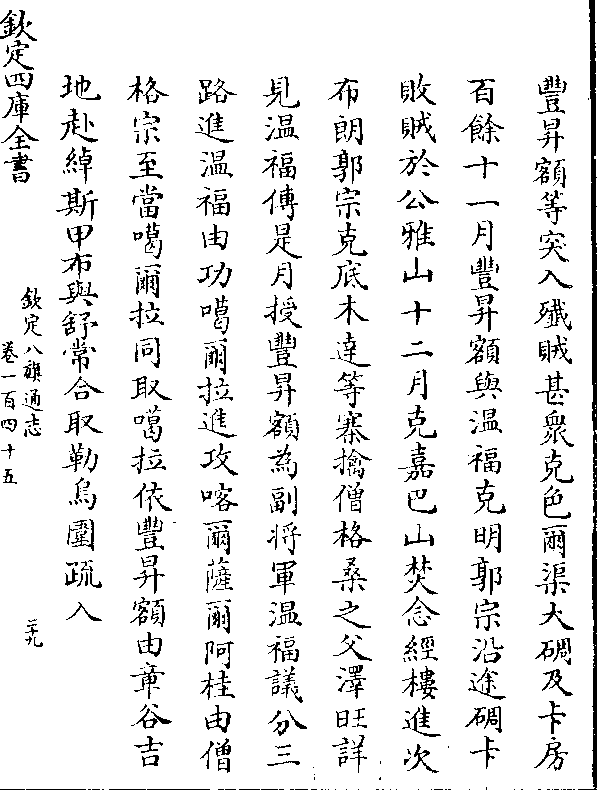 豐昇額等突入殲賊甚衆克色爾渠大碉及卡房
百餘十一月豐昇額與温福克明郭宗沿途碉卡
敗賊於公雅山十二月克嘉巴山焚念經樓進次
布朗郭宗克底木達等寨擒僧格桑之父澤旺詳
見温福傳是月授豐昇額為副将軍温福議分三
路進温福由功噶爾拉進攻喀爾薩爾阿桂由僧
格宗至當噶爾拉同取噶拉依豐昇額由章谷吉
地赴綽斯甲布與舒常合取勒烏圍疏入
欽定四庫全書
欽定八旗通志
卷一百四十五
二十九